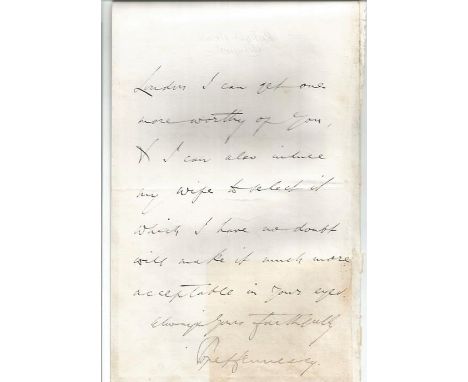 London I can get one
more worthy of you,
& I can also induce
my wife to select it
which I have no doubt
will make it much more
acceptable in your eyes
always yours faithfully